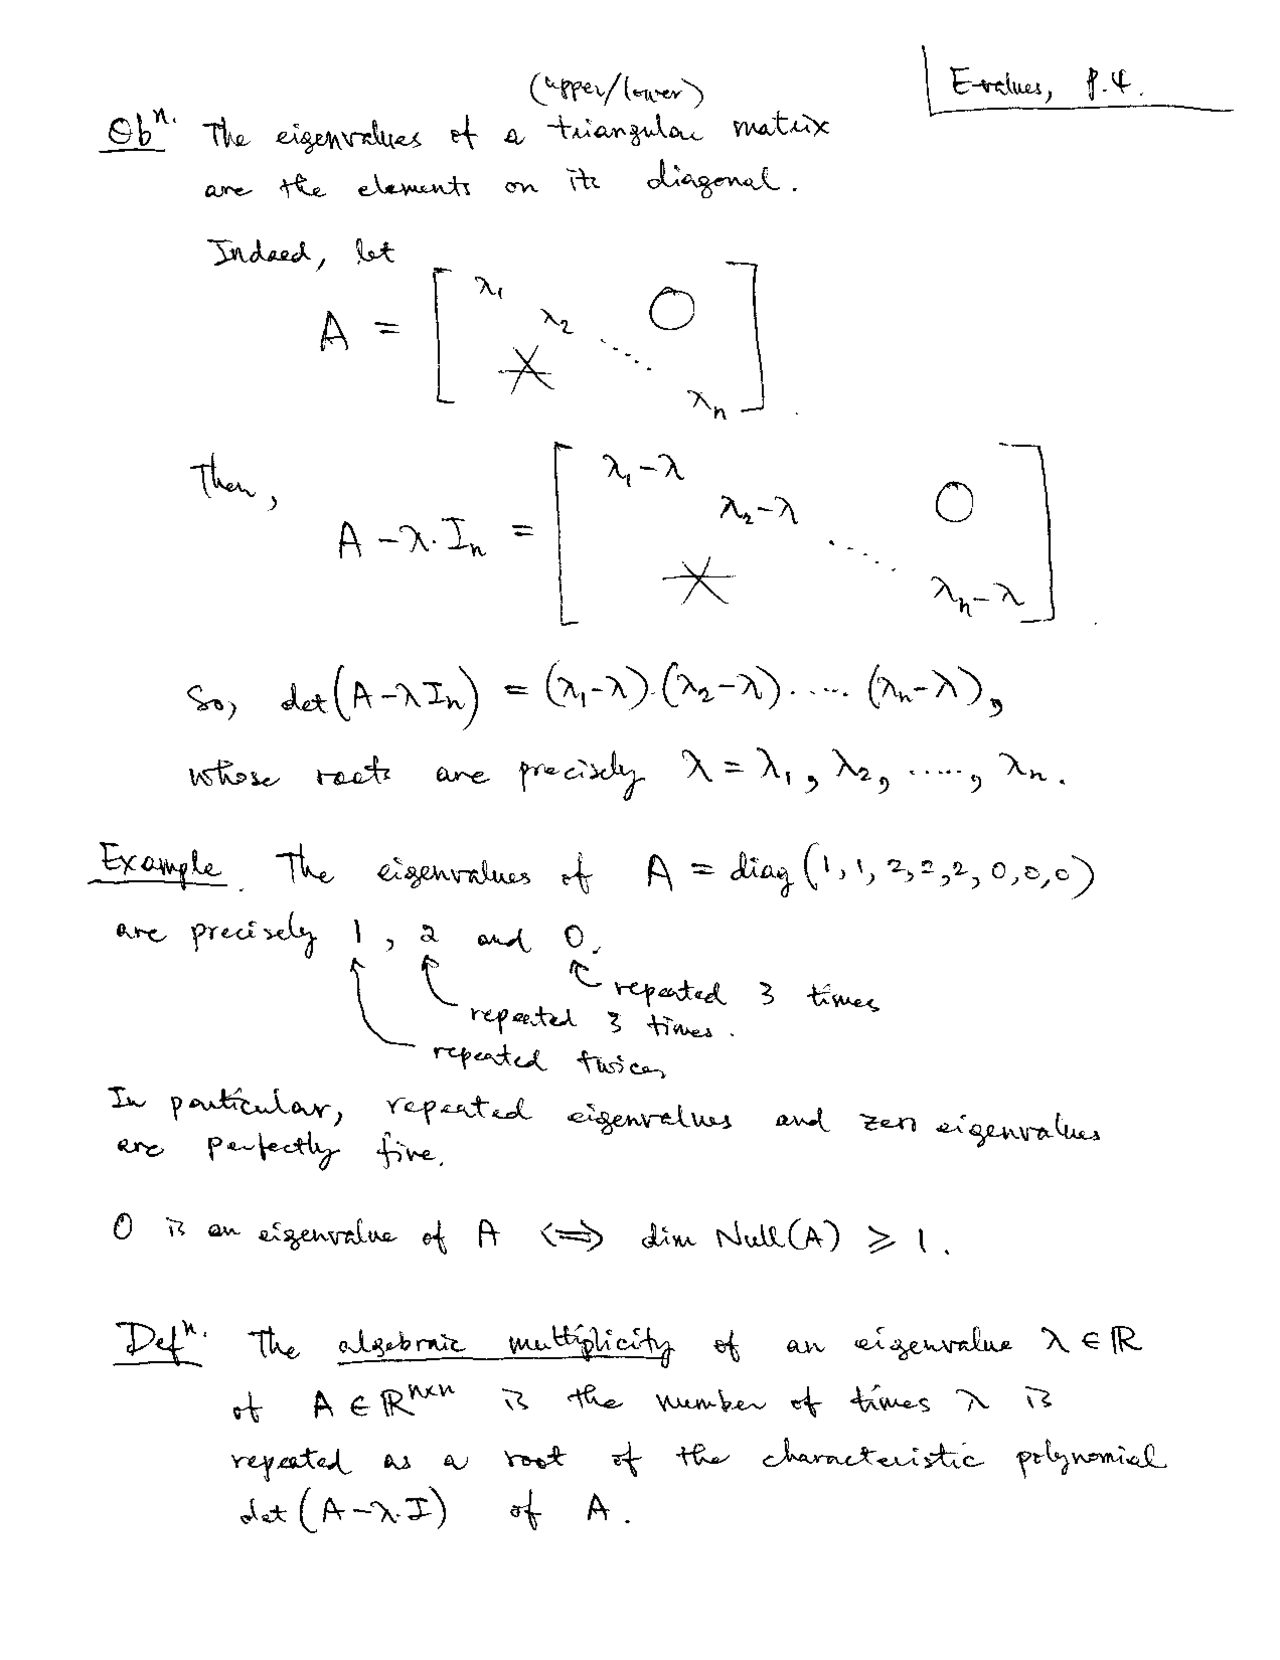 E-values, p.4.
(upper/lower)
Obⁿ. The eigenvalues of a triangular matrix
are the elements on its diagonal.
Indeed, let
A = [ λ₁ λ₂ ..... λₙ O * ]
Then,
A - λ·Iₙ = [ λ₁-λ λ₂-λ ..... λₙ-λ O * ]
So, det(A-λIₙ) = (λ₁-λ)·(λ₂-λ)·....(λₙ-λ),
whose roots are precisely λ = λ₁, λ₂, ....., λₙ.
Example. The eigenvalues of A = diag(1,1,2,2,2,0,0,0)
are precisely 1, 2 and 0.
repeated 3 times
repeated 3 times.
repeated twice,
In particular, repeated eigenvalues and zero eigenvalues
are perfectly fine.
0 is an eigenvalue of A ⟺ dim Null(A) ⩾ 1.
Defⁿ. The algebraic multiplicity of an eigenvalue λ ∈ ℝ
of A ∈ ℝⁿˣⁿ is the number of times λ is
repeated as a root of the characteristic polynomial
det(A-λ·I) of A.